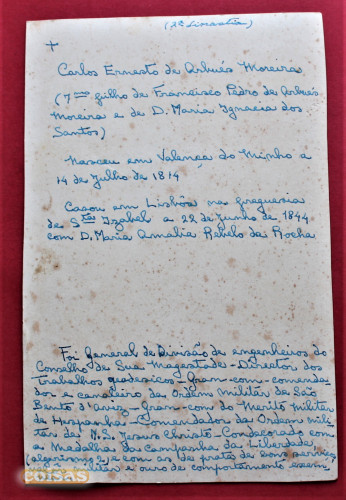 +
Carlos Ernesto de Arbués Moreira
(7º filho de Francisco Pedro de Arbués
Moreira e de D. Maria Ignacia dos
Santos)
Nasceu em Valença do Minho a
14 de Julho de 1814
Casou em Lisbôa na freguesia
de Sta Izabel a 22 de Junho de 1844
com D. Maria Amalia Rebelo da Rocha
Foi general de divisão de engenheiros do
Conselho de Sua Magestade - Director dos
Trabalhos geodesicos - Gram-com-comenda
dor e cavaleiro da Ordem Militar de São
Bento d'Aviz - Gram-com do Merito Militar
de Hespanha - Comendador da Ordem mili
tar de N. S. Jesus Christo - Condecorado com
a Medalha da Campanha da Liberdade
(algarismo) e com as de prata de bons serviços
e ouro de comportamento exem
COISAS